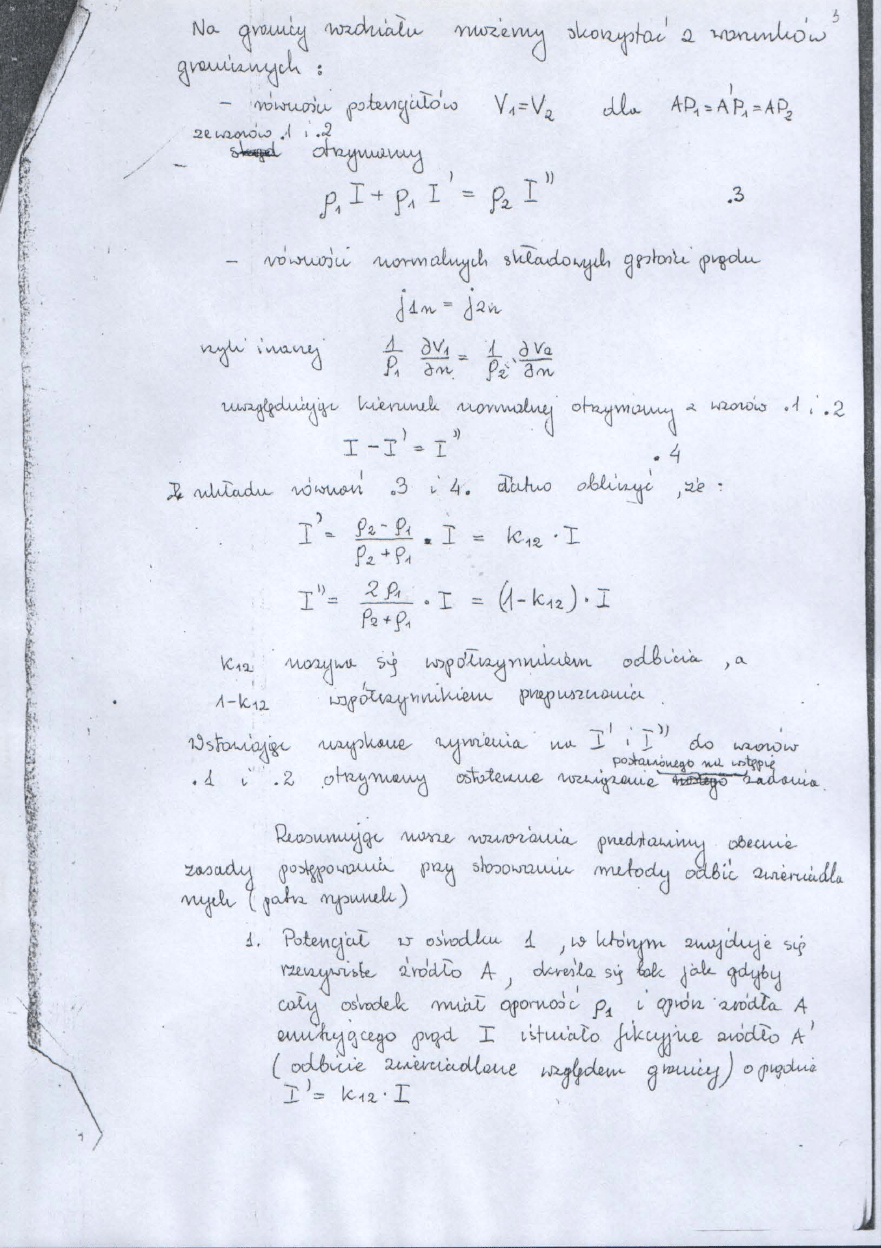 3
Na granicy rozdziału możemy skorzystać z warunków
granicznych :
- równości potencjałów V₁=V₂ dla AP₁=A'P₁=AP₂
ze wzorów .1 i .2
- otrzymamy
ρ₁ I + ρ₁ I' = ρ₂ I'' .3
- równości normalnych składowych gęstości prądu
j₁ₙ = j₂ₙ
czyli inaczej 1/ρ₁ ∂V₁/∂n = 1/ρ₂ · ∂V₂/∂n
uwzględniając kierunek normalnej otrzymamy z wzorów .1 i .2
I - I' = I'' . 4
Z układu równań .3 i 4. łatwo obliczyć , że :
I' = (ρ₂ - ρ₁)/(ρ₂ + ρ₁) · I = k₁₂ · I
I'' = 2 ρ₁/(ρ₂ + ρ₁) · I = (1-k₁₂) · I
k₁₂ nazywa się współczynnikiem odbicia , a
1-k₁₂ współczynnikiem przepuszczania
Wstawiając uzyskane wyrażenia na I' i I'' do wzorów
postawionego na wstępie
.1 i .2 otrzymamy ostateczne rozwiązanie zadania.
Reasumując nasze rozważania przedstawimy obecnie
zasady postępowania przy stosowaniu metody odbić zwierciadla
nych ( patrz rysunek )
1. Potencjał w ośrodku 1 , w którym znajduje się
rzeczywiste źródło A , określa się tak jak gdyby
cały ośrodek miał oporność ρ₁ i oprócz źródła A
emitującego prąd I istniało fikcyjne źródło A'
( odbicie zwierciadlane względem granicy ) o prądzie
I' = k₁₂ · I